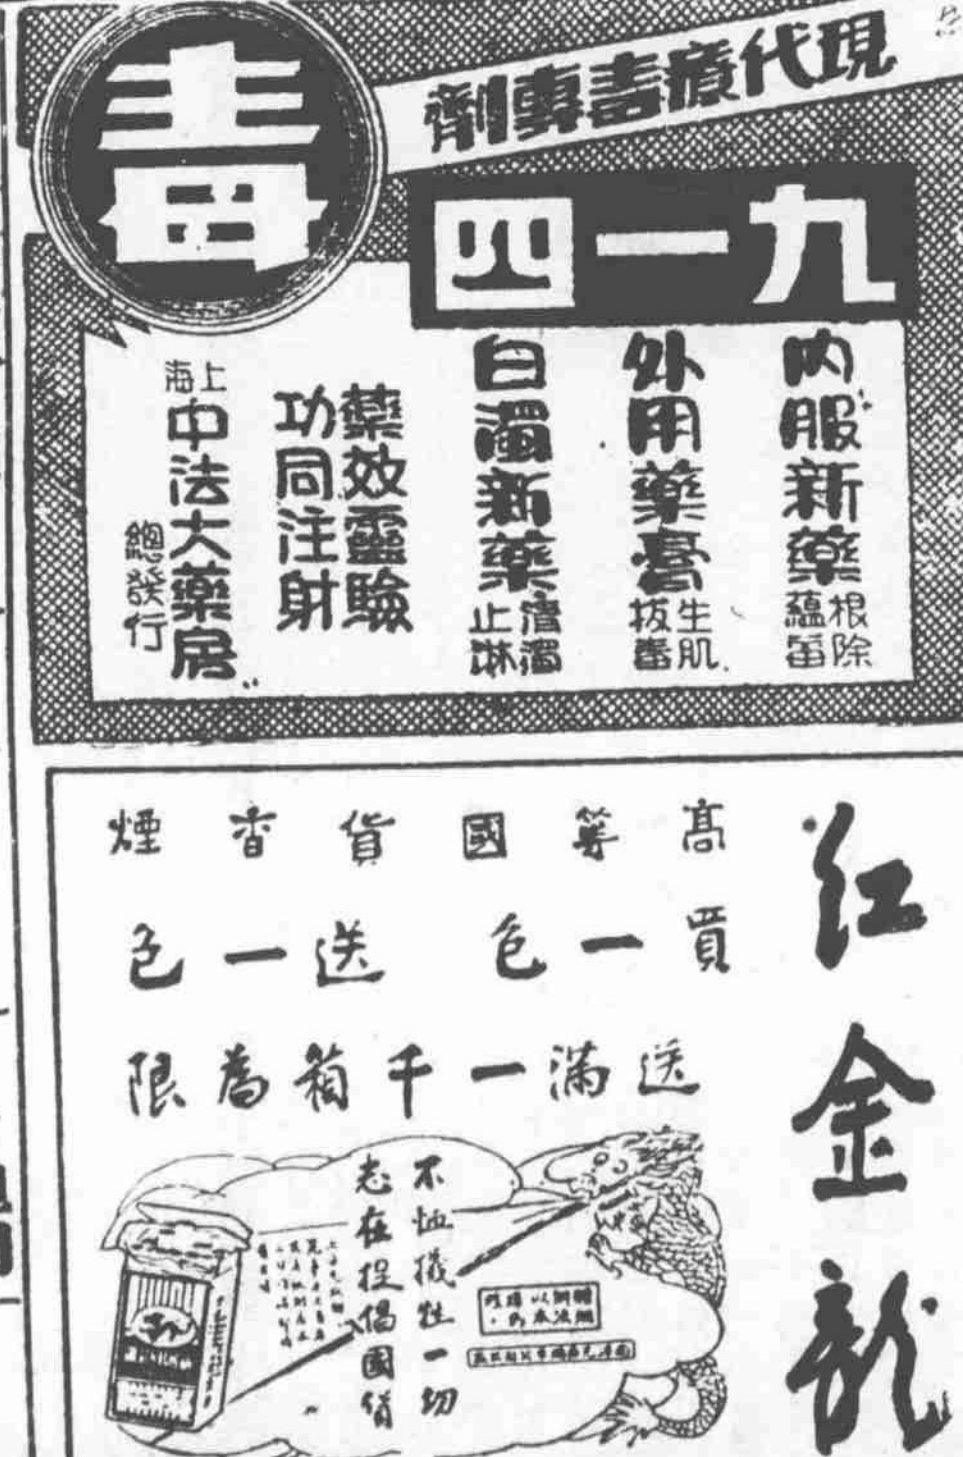 現代療毒專劑
毒
九一四
內服新藥
根除
蘊毒
外用藥膏
生肌
拔毒
白濁新藥
清濁
止淋
藥效靈驗
功同注射
上海
中法大藥房
總發行
紅金龍
高等國貨香煙
買一包送一包
送滿一千箱為限
不恤犧牲一切
志在提倡國貨